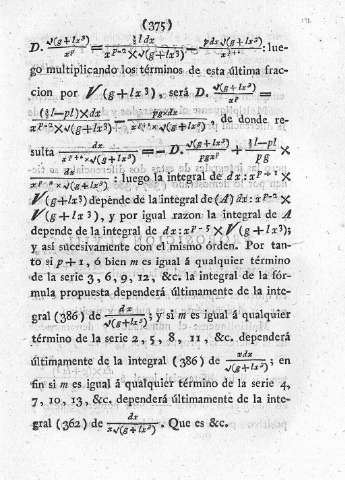 (375)
D. √(g+lx³)/xᵖ = (3/2)l dx / xᵖ⁻² × √(g+lx³) − p dx √(g+lx³) / xᵖ⁺¹ : lue-
go multiplicando los términos de esta última frac-
cion por √(g+lx³), será D. √(g+lx³)/xᵖ =
(3/2 l−pl)×dx / xᵖ⁻²×√(g+lx³) − pg×dx / xᵖ⁺¹×√(g+lx³), de donde re-
sulta dx / xᵖ⁺¹×√(g+lx³) = −D. √(g+lx³)/pgxᵖ + 3/2 l−pl / pg ×
dx / xᵖ⁻²×√(g+lx³) : luego la integral de dx : xᵖ⁺¹ ×
√(g+lx³) depende de la integral de (A) dx : xᵖ⁻² ×
√(g+lx³), y por igual razon la integral de A
depende de la integral de dx : xᵖ⁻⁵ × √(g+lx³);
y asi sucesivamente con el mismo órden. Por tan-
to si p+1, ó bien m es igual á qualquier término
de la serie 3, 6, 9, 12, &c. la integral de la fór-
mula propuesta dependerá últimamente de la inte-
gral (386) de dx/√(g+lx³); y si m es igual á qualquier
término de la serie 2, 5, 8, 11, &c. dependerá
últimamente de la integral (386) de xdx/√(g+lx³); en
fin si m es igual á qualquier término de la serie 4,
7, 10, 13, &c. dependerá últimamente de la inte-
gral (362) de dx/x√(g+lx³). Que es &c.